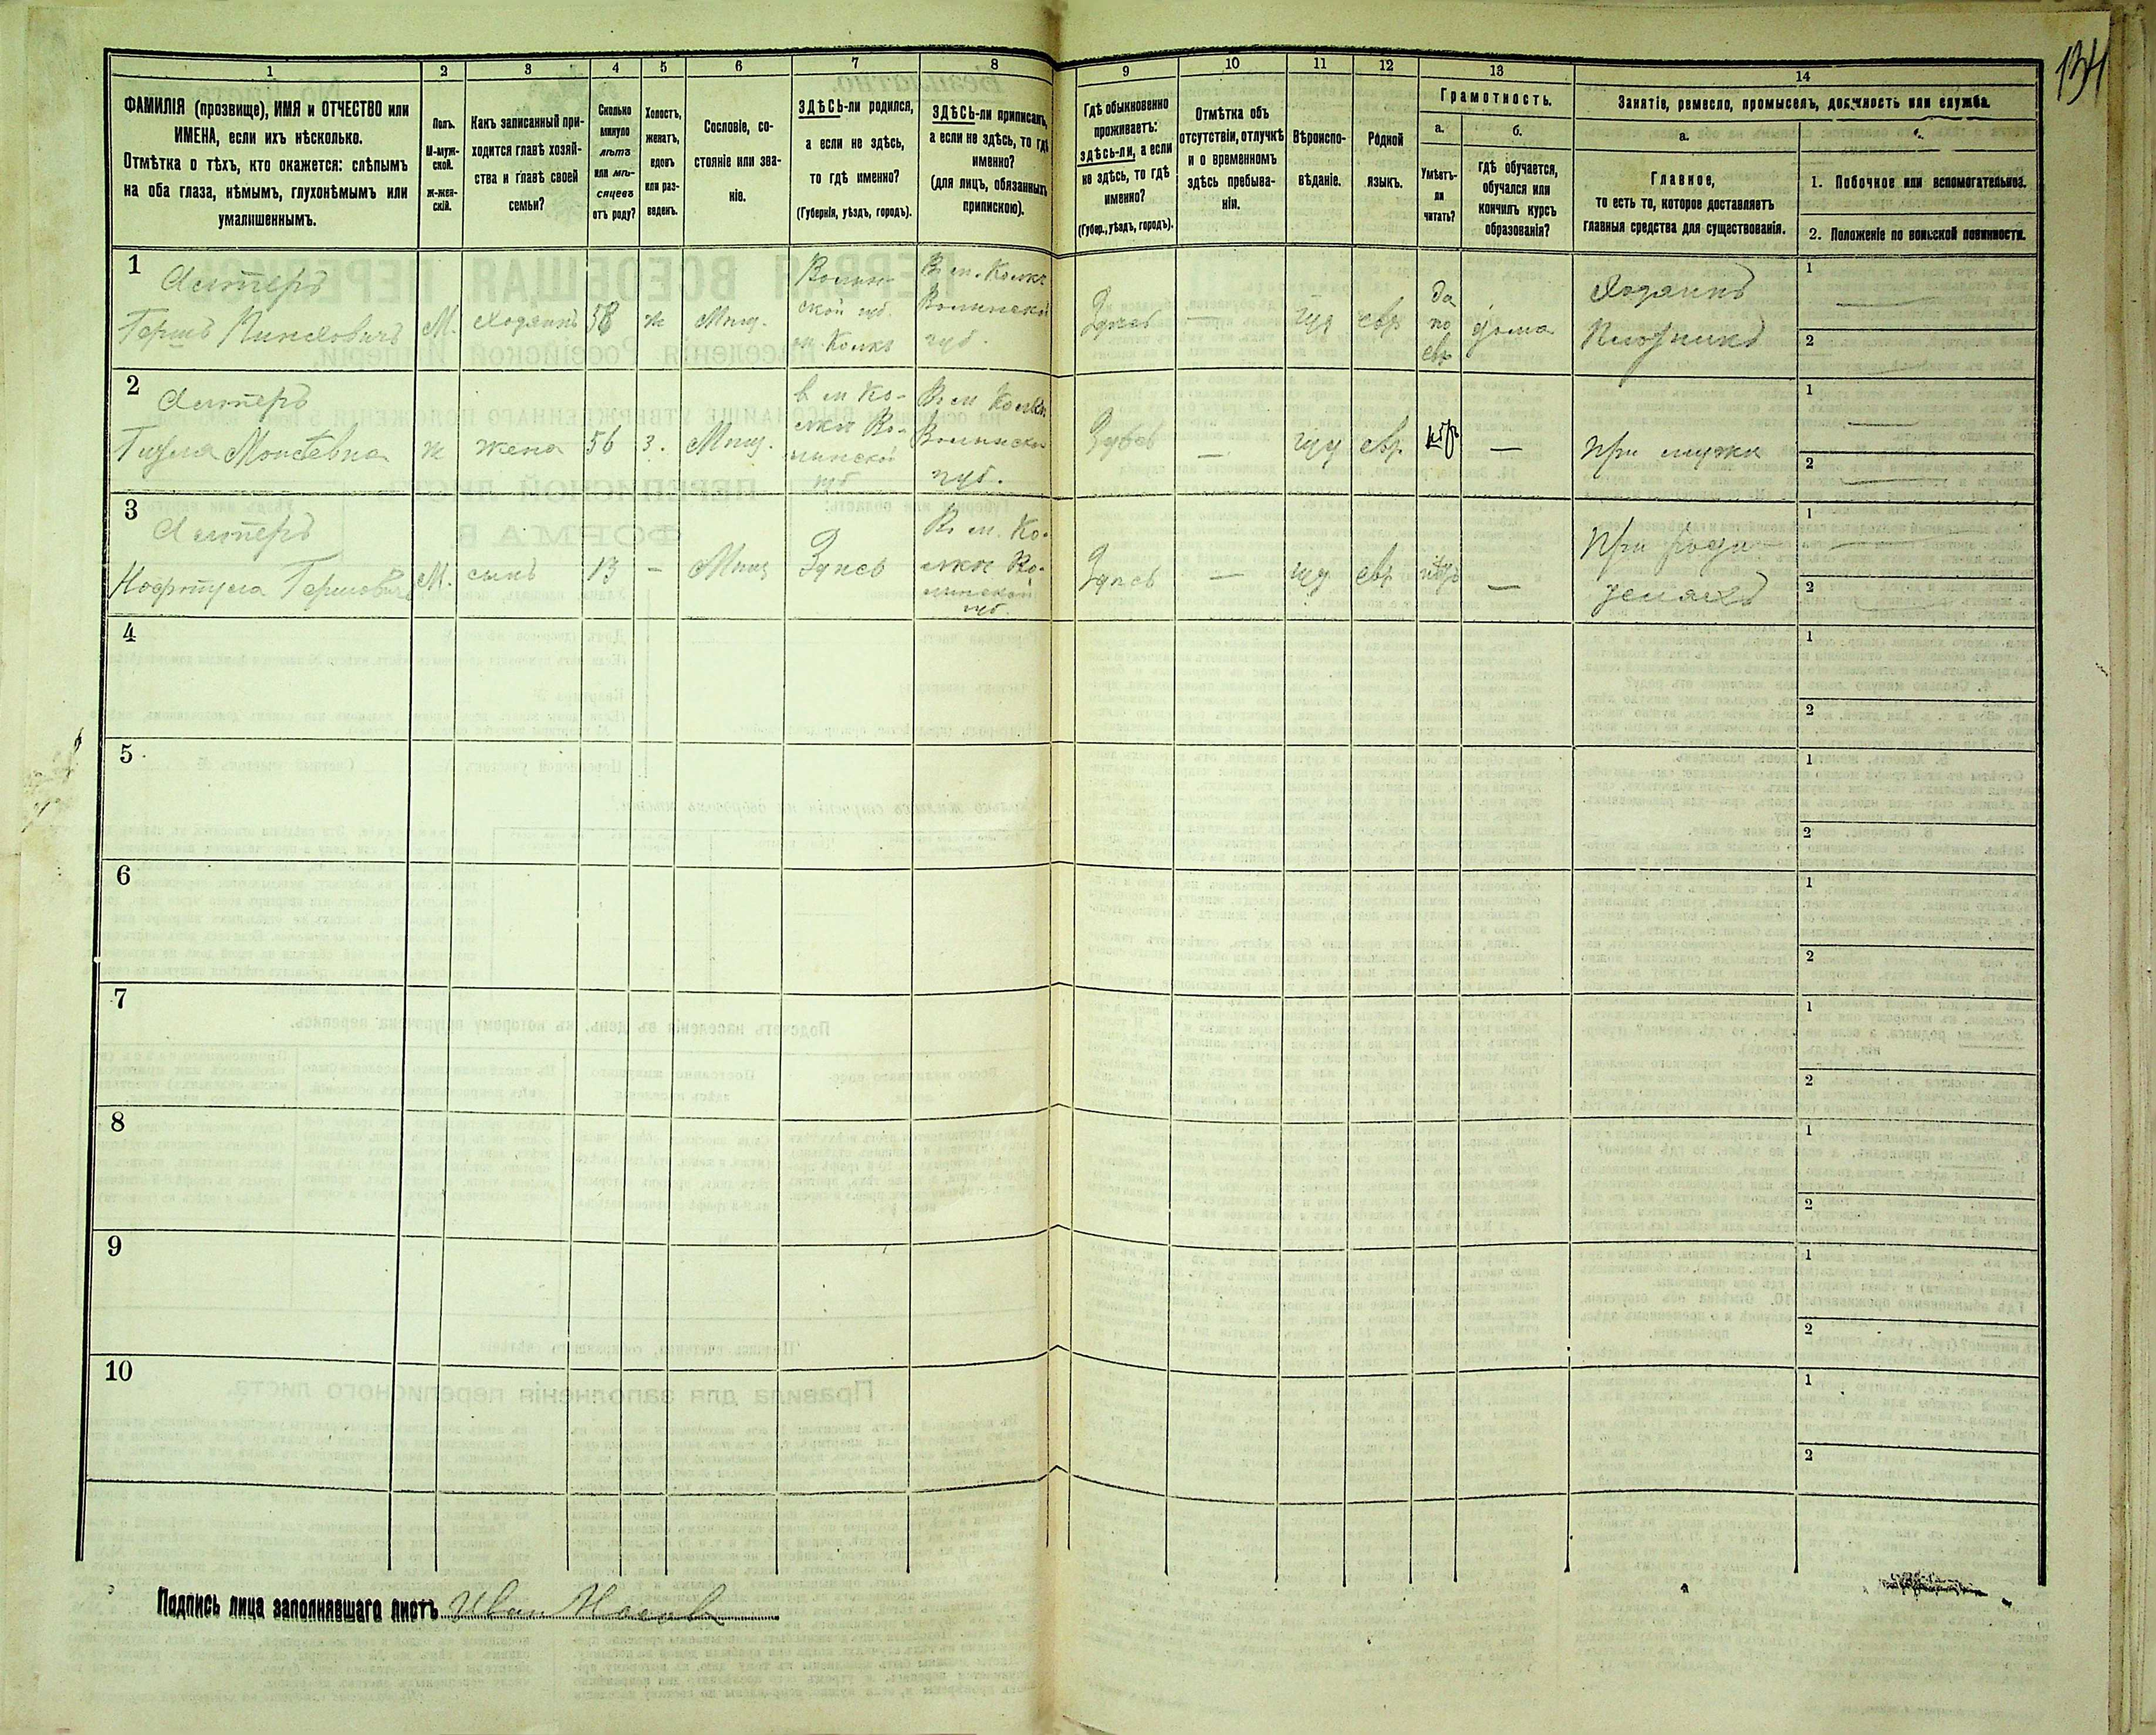 134
1 2 3 4 5 6 7 8 9 10 11 12 13 14
ФАМИЛІЯ (прозвище), ИМЯ и ОТЧЕСТВО или
ИМЕНА, если ихъ нѣсколько.
Отмѣтка о тѣхъ, кто окажется: слѣпымъ
на оба глаза, нѣмымъ, глухонѣмымъ или
умалишеннымъ.
Полъ.
М-муж-
ской.
ж-жен-
скій.
Какъ записанный при-
ходится главѣ хозяй-
ства и главѣ своей
семьи?
Сколько
минуло
лѣтъ
или мѣ-
сяцевъ
отъ роду?
Холостъ,
женатъ,
вдовъ
или раз-
веденъ.
Сословіе, со-
стояніе или зва-
ніе.
ЗДѢСЬ-ли родился,
а если не здѣсь,
то гдѣ именно?
(Губернія, уѣздъ, городъ).
ЗДѢСЬ-ли приписанъ,
а если не здѣсь, то гдѣ
именно?
(для лицъ, обязанныхъ
припискою).
Гдѣ обыкновенно
проживаетъ:
здѣсь-ли, а если
не здѣсь, то гдѣ
именно?
(Губер., уѣздъ, городъ).
Отмѣтка объ
отсутствіи, отлучкѣ
и о временномъ
здѣсь пребыва-
ніи.
Вѣроиспо-
вѣданіе.
Родной
языкъ.
Грамотность.
а.
Умѣетъ-
ли
читать?
б.
гдѣ обучается,
обучался или
кончилъ курсъ
образованія?
Занятіе, ремесло, промыселъ, должность или служба.
а.
Главное,
то есть то, которое доставляетъ
главныя средства для существованія.
1. Побочное или вспомогательное.
2. Положеніе по воинской повинности.
1
Алтеръ
Гершъ Пинковичъ
М.
Хозяинъ
58
ж
Мѣщ.
Волын-
ской губ.
м. Колкъ
Въ м. Колки
Волынской
губ.
Здѣсь
—
іуд
евр
да
по
евр
дома
Хозяинъ
Плотникъ
1
2
2
Алтеръ
Моисѣевна
ж
жена
56
з.
Мѣщ.
в м Ко-
лки Во-
лынской
губ
Въ м Колки
Волынской
губ.
Здѣсь
—
іуд
евр.
нѣтъ
—
При мужѣ
1
2
3
Алтеръ
Гершовичъ
М.
сынъ
13
—
Мѣщ
Здѣсь
Въ м. Ко-
лки Во-
лынской
губ
Здѣсь
—
іуд
евр
нѣтъ
—
При роди-
теляхъ
1
2
4
1
2
5
1
2
6
1
2
7
1
2
8
1
2
9
1
2
10
1
2
Подпись лица заполнявшаго листъ Иван